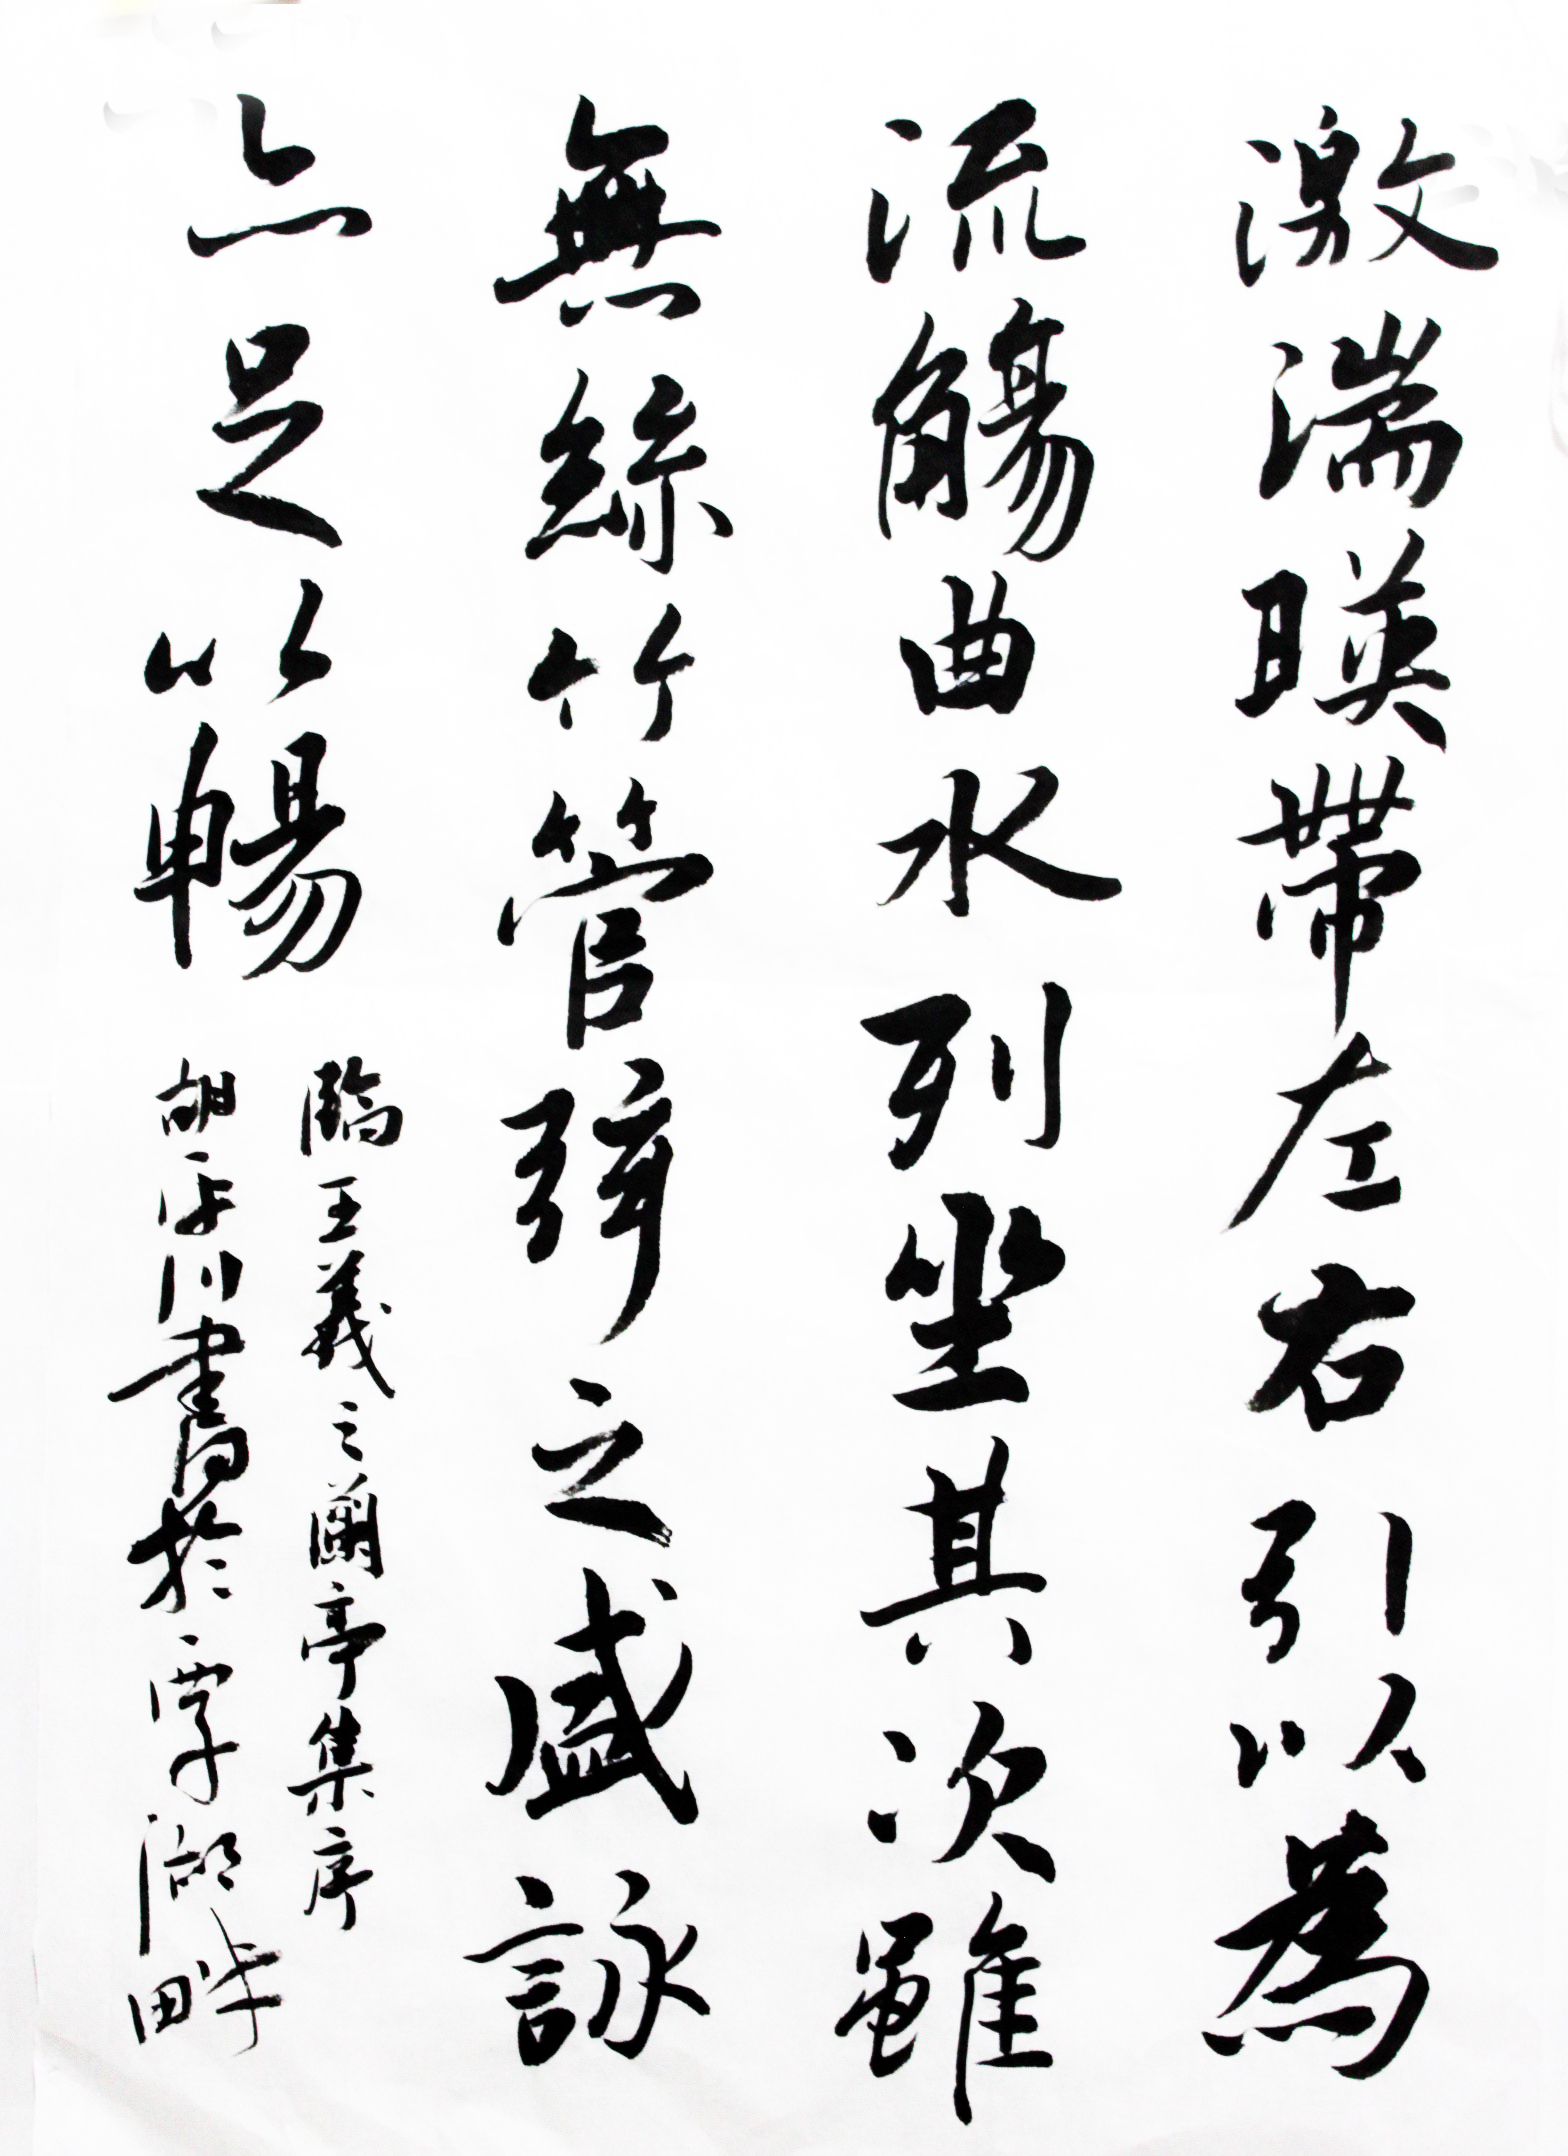 激湍暎帶左右引以為
流觴曲水列坐其次雖
無絲竹管弦之盛詠
亦足以暢
臨王羲之蘭亭集序
胡平川書於湖畔